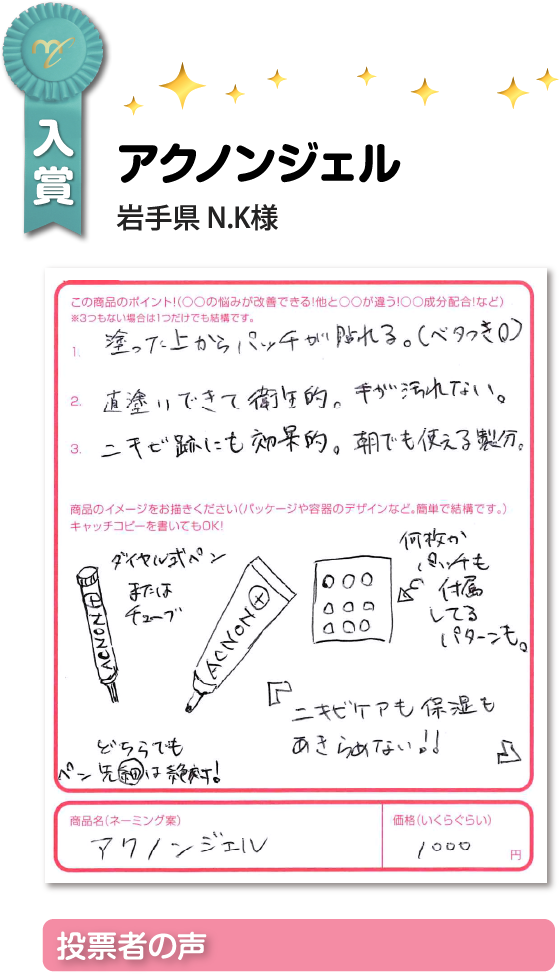 入賞
アクノンジェル
岩手県 N.K様
この商品のポイント!(○○の悩みが改善できる!他と○○が違う!○○成分配合!など)
※3つもない場合は1つだけでも結構です。
1. 塗った上からパッチが貼れる。(ベタつき0)
2. 直塗りできて衛生的。手が汚れない。
3. ニキビ跡にも効果的。朝でも使える製分。
商品のイメージをお描きください(パッケージや容器のデザインなど。簡単で結構です。)
キャッチコピーを書いてもOK!
ダイヤル式ペン
または
チューブ
ACNON
ACNON
何枚か
パッチも
付属
してる
パターンも。
『ニキビケアも保湿も
あきらめない!!』
どちらでも
ペン先細は絶対!
商品名(ネーミング案)
アクノンジェル
価格(いくらぐらい)
1000円
投票者の声